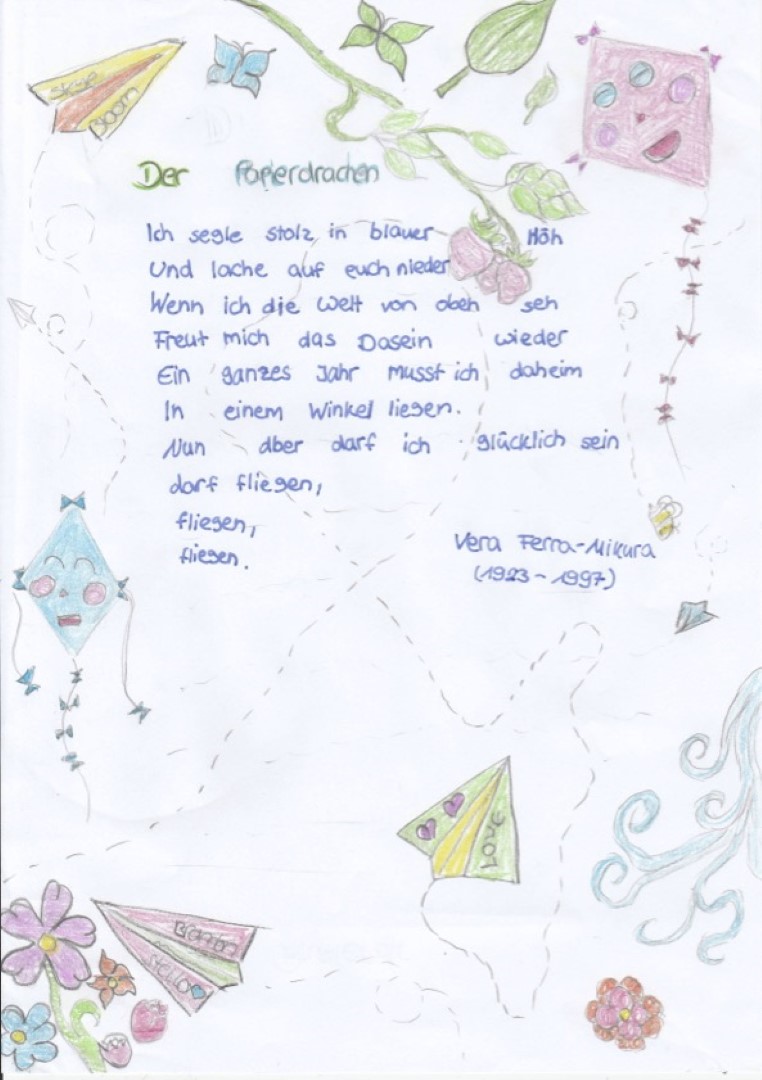 Der Papierdrachen
Ich segle stolz in blauer Höh
Und lache auf euch nieder
Wenn ich die Welt von oben seh
Freut mich das Dasein wieder
Ein ganzes Jahr musst ich daheim
In einem Winkel liegen.
Nun aber darf ich glücklich sein
darf fliegen,
fliegen,
fliegen.
Vera Ferra-Mikura
(1923-1997)
Boom
Love
Hello